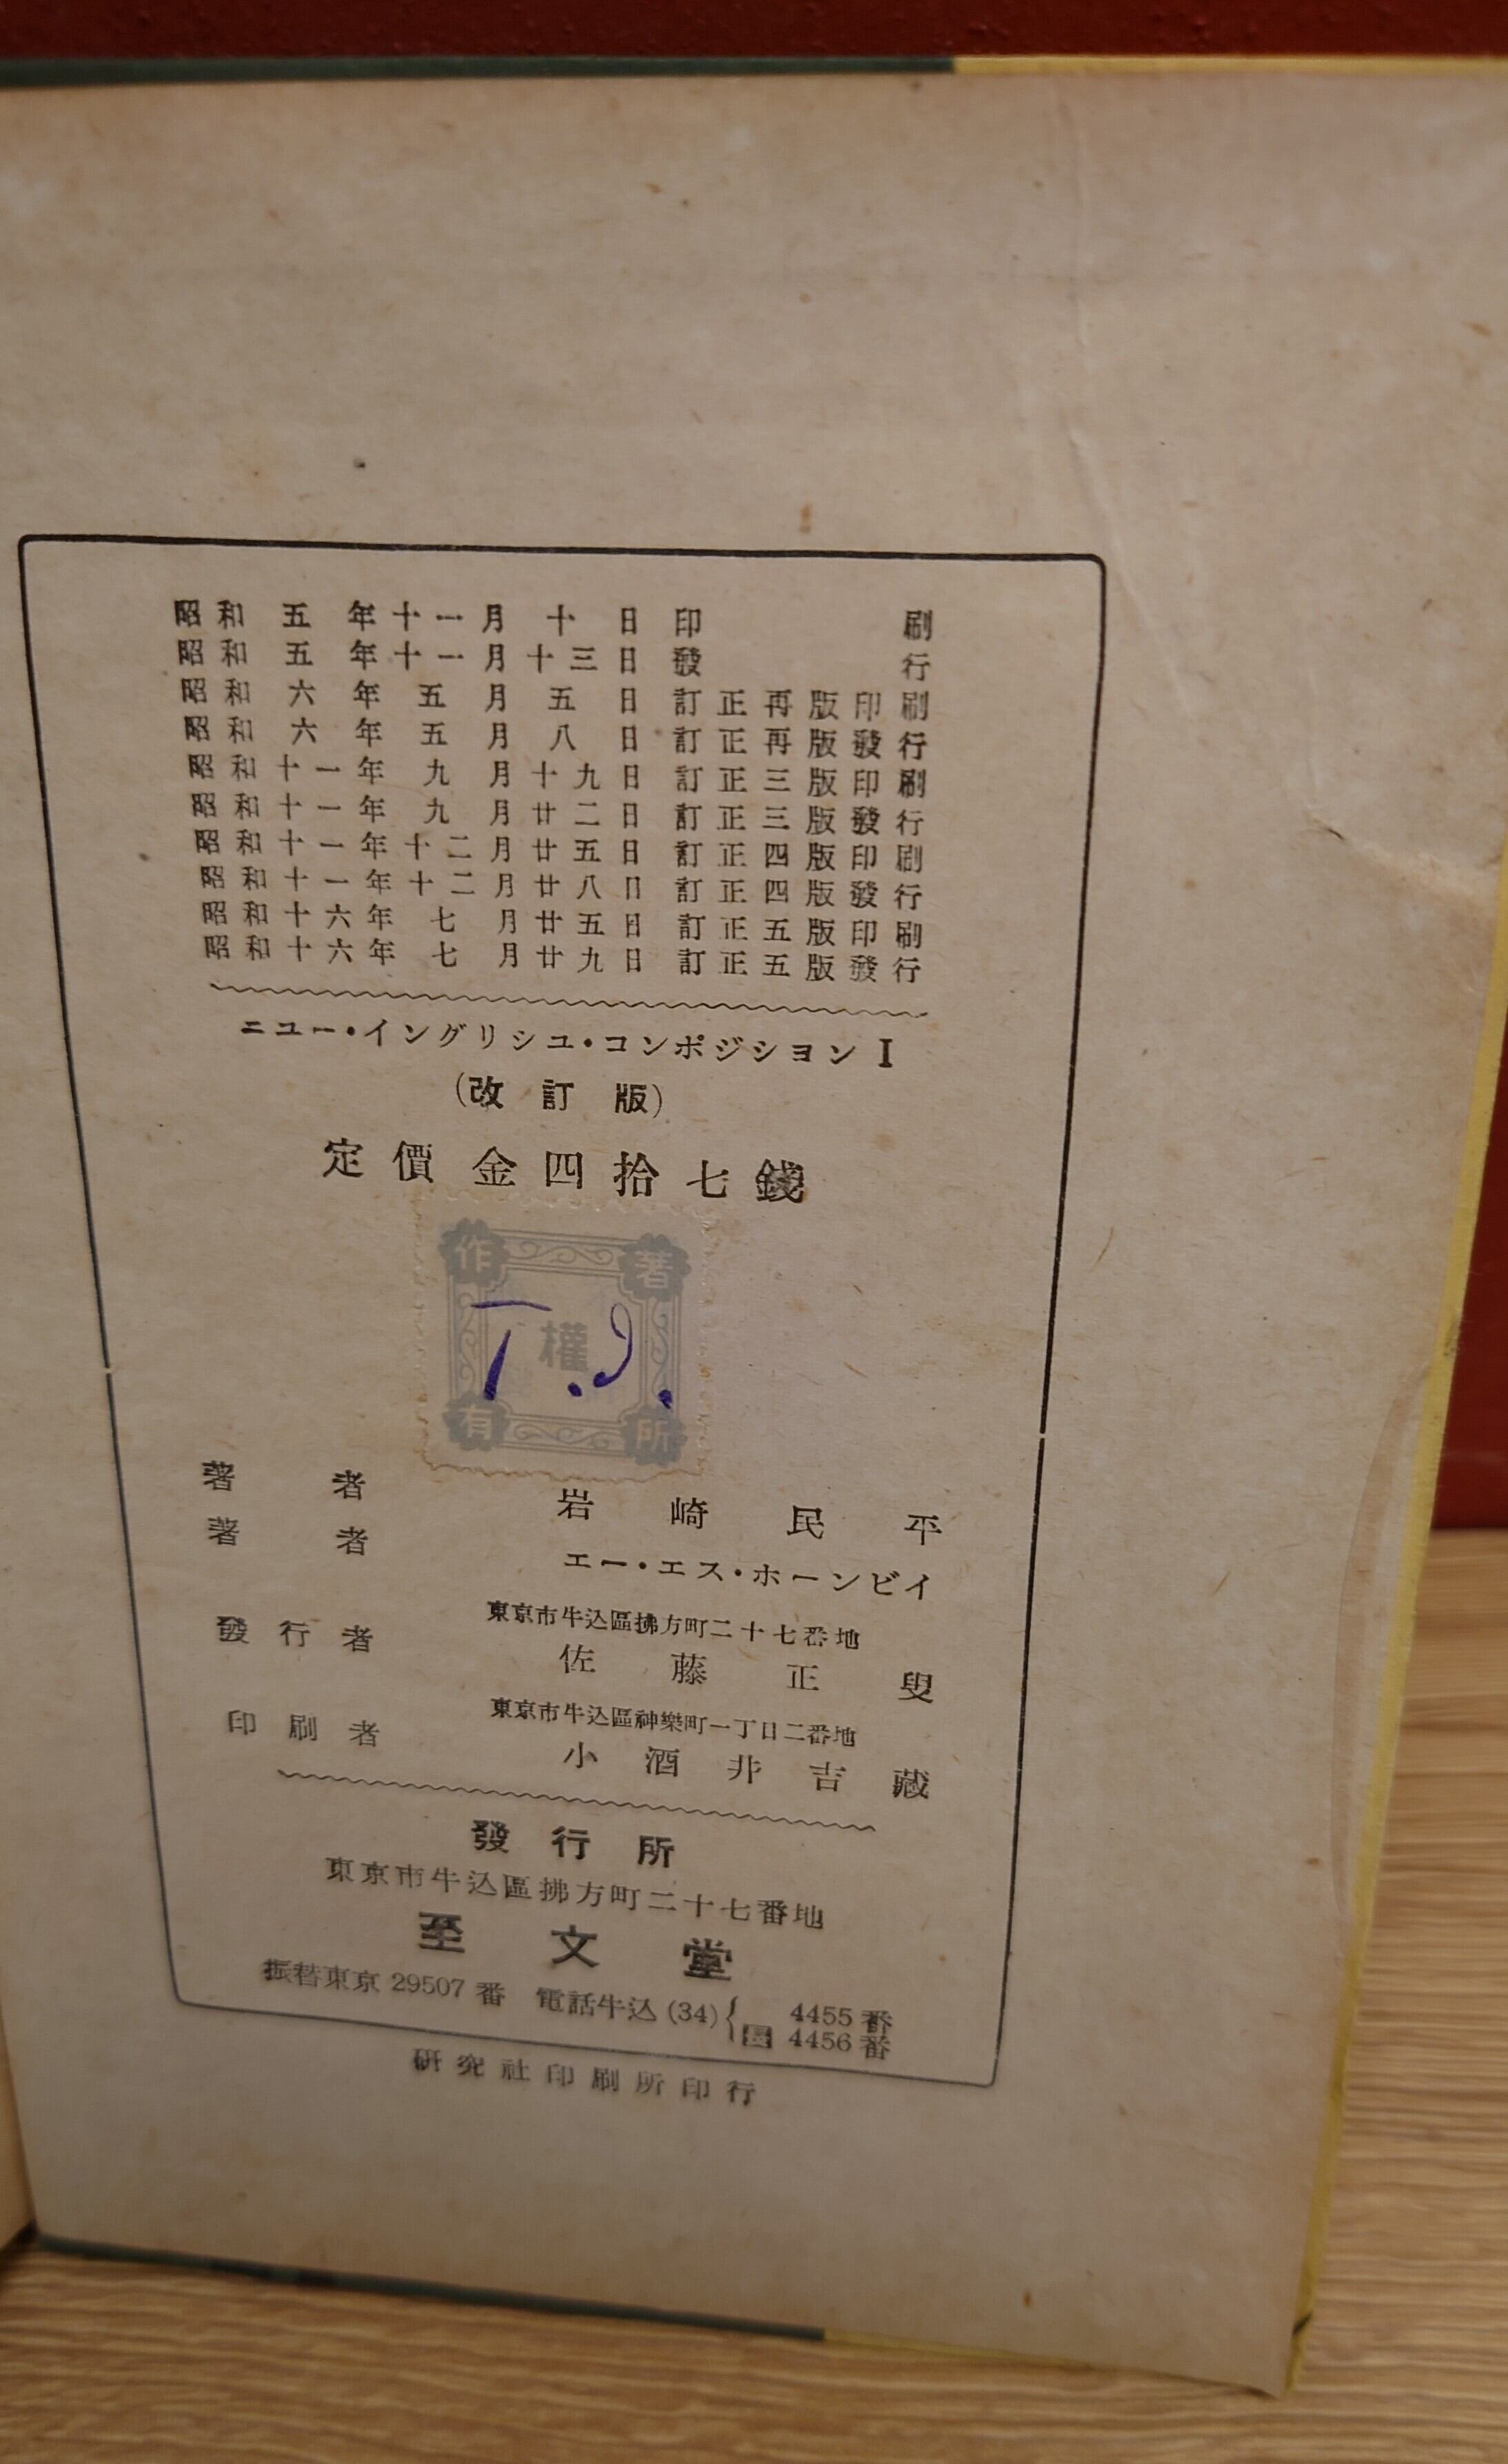 昭和五年十一月十日印刷
昭和五年十一月十三日發行
昭和六年五月五日訂正再版印刷
昭和六年五月八日訂正再版發行
昭和十一年九月十九日訂正三版印刷
昭和十一年九月廿二日訂正三版發行
昭和十一年十二月廿五日訂正四版印刷
昭和十一年十二月廿八日訂正四版發行
昭和十六年七月廿五日訂正五版印刷
昭和十六年七月廿九日訂正五版發行
ニユー・イングリシユ・コンポジシヨン I
(改訂版)
定價金四拾七錢
著作權所有
T.I.
著者 岩崎民平
著者 エー・エス・ホーンビイ
東京市牛込區拂方町二十七番地
發行者 佐藤正叟
東京市牛込區神樂町一丁目二番地
印刷者 小酒井吉藏
發行所
東京市牛込區拂方町二十七番地
至文堂
振替東京 29507 番 電話牛込 (34) 4455 番
長 4456 番
研究社印刷所印行